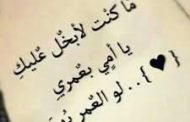 ما كنت لأبخل عليكِ
يا أمي بعمري
{♥}...لو العمر